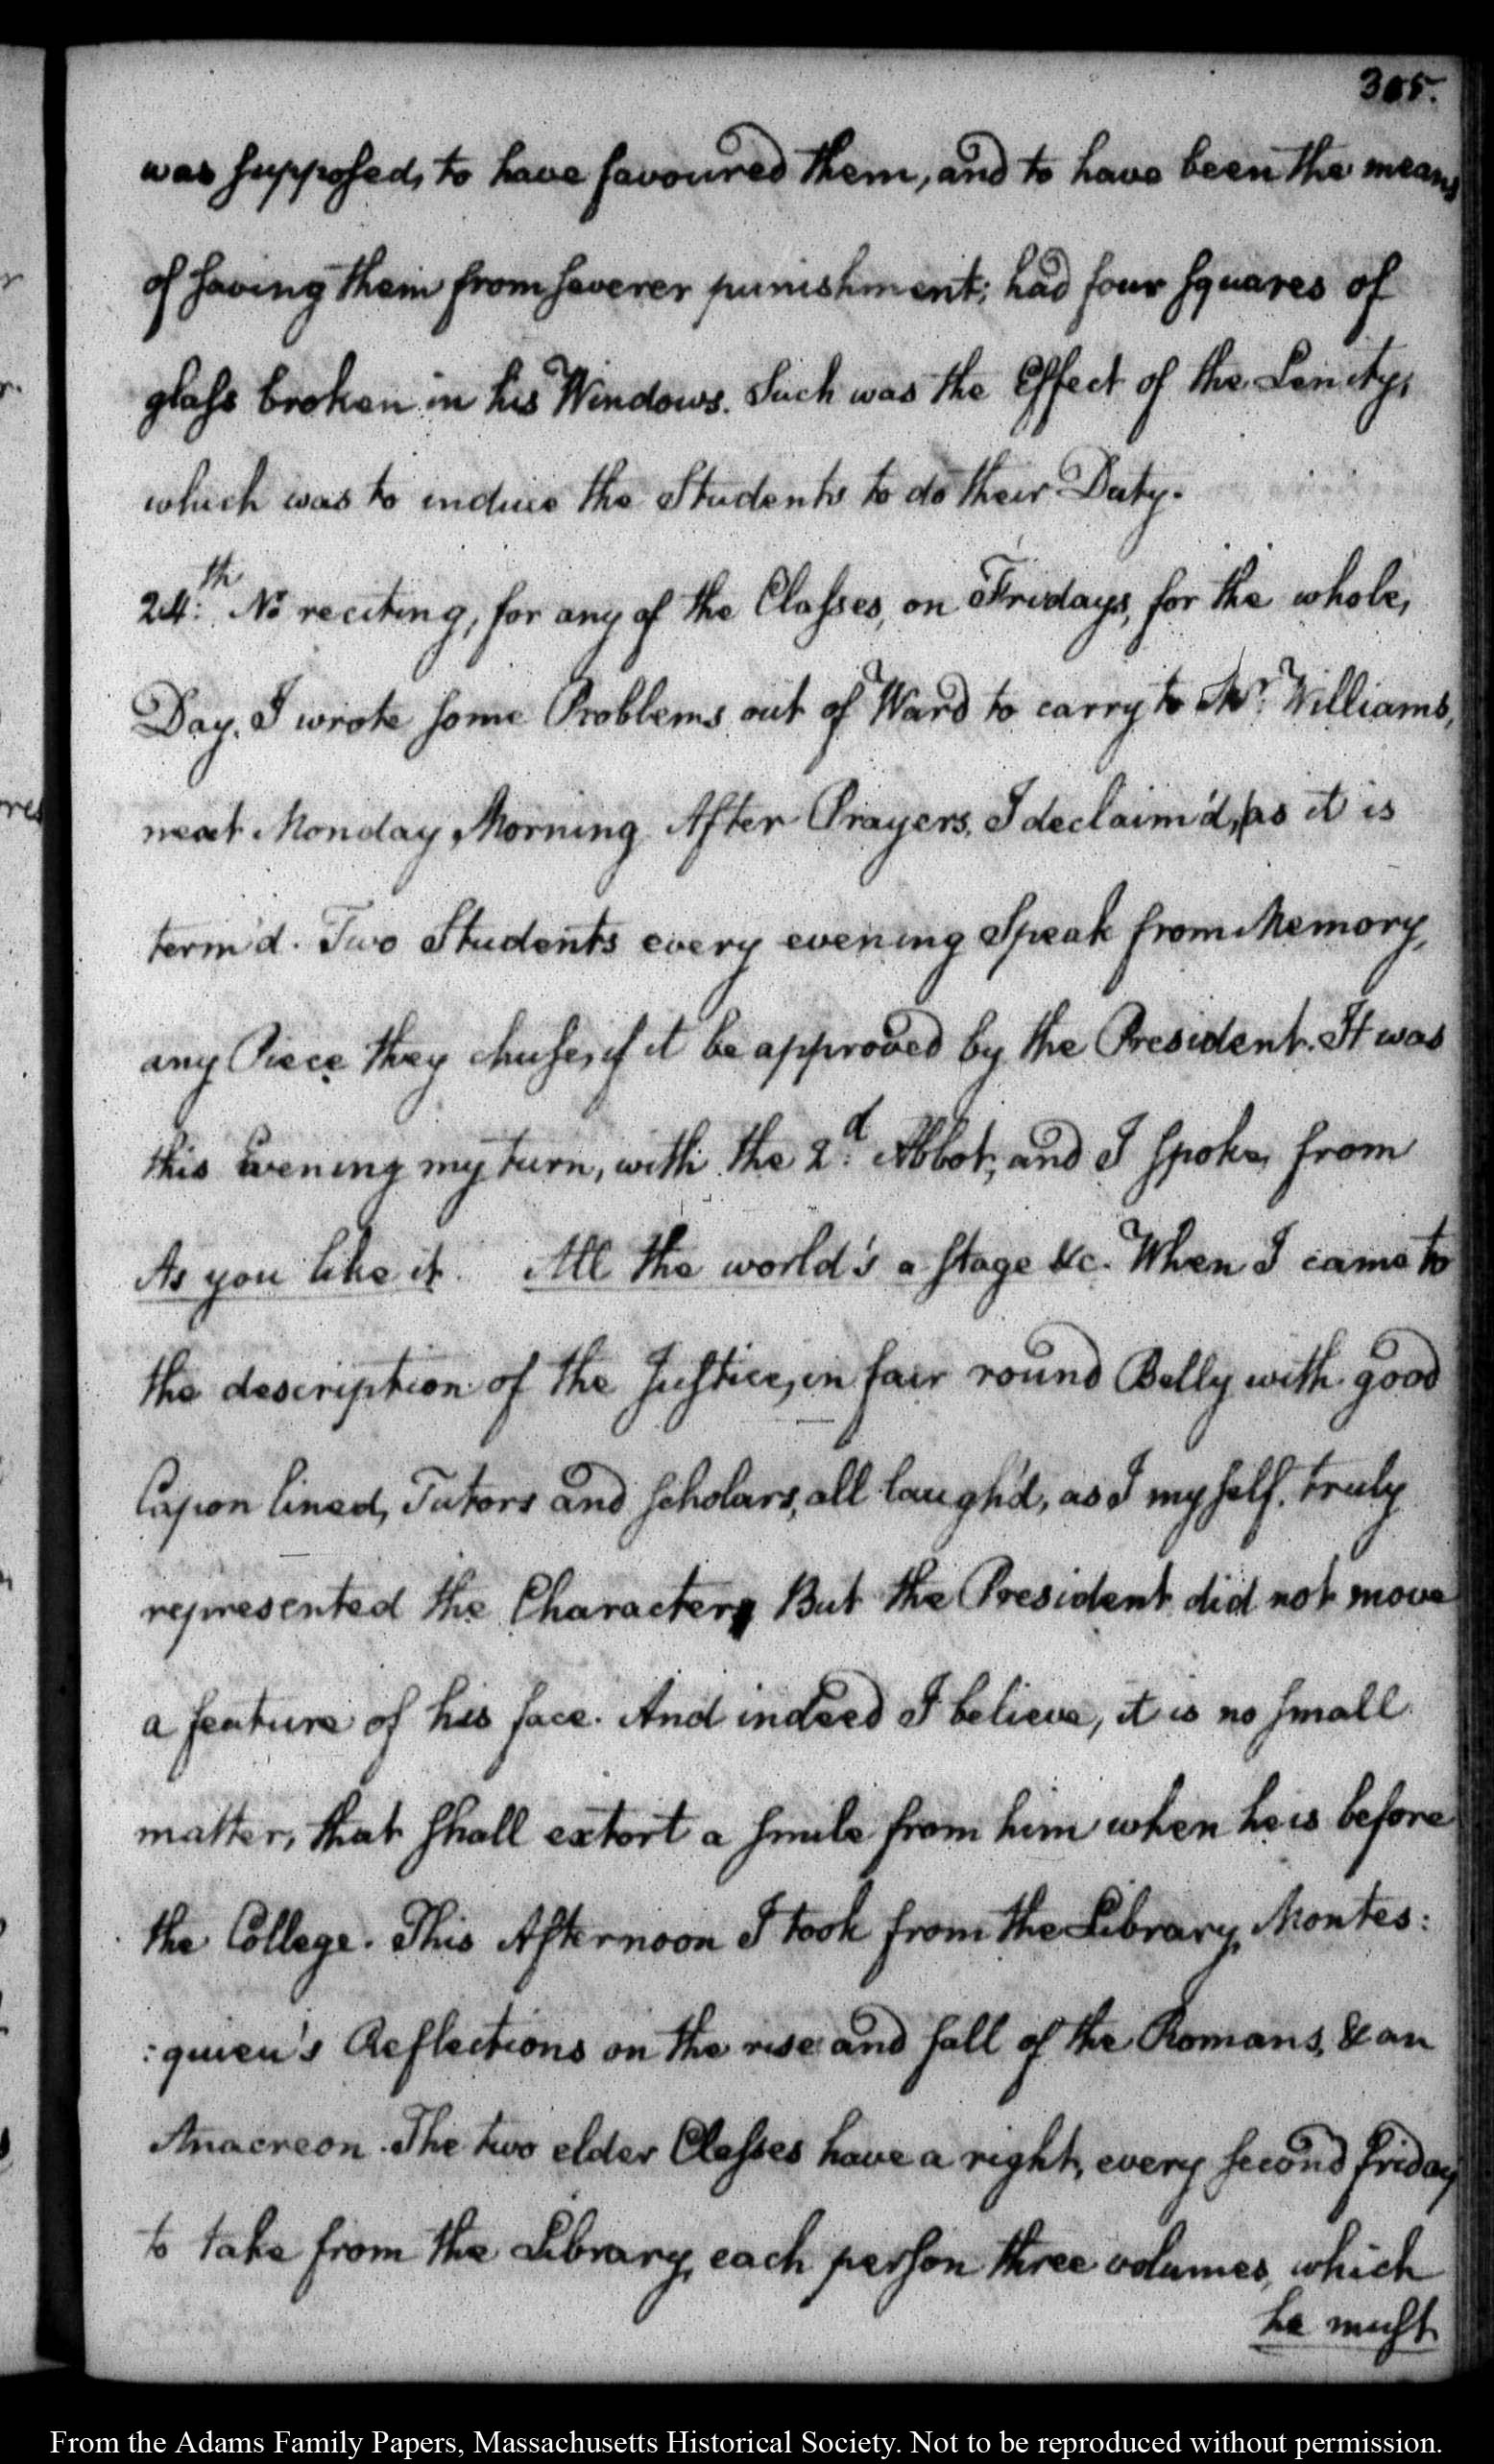 305.
was supposed, to have favoured them, and to have been the means
of saving them from severer punishment; had four squares of
glass broken in his Windows. Such was the Effect of the Lenity,
which was to induce the Students to do their Duty.
24:th No reciting, for any of the Classes, on Fridays, for the whole,
Day. I wrote some Problems out of Ward to carry to Mr. Williams,
next Monday Morning. After Prayers, I declaim'd, as it is
term'd. Two Students every evening Speak from Memory,
any Piece they chuse, if it be approved by the President. It was
this Evening my turn, with the 2:d Abbot, and I spoke, from
As you like it. All the world's a stage &c. When I came to
the description of the Justice, in fair round Belly with good
Capon lined, Tutors and scholars, all laugh'd, as I myself, truly
represented the Character, But the President did not move
a feature of his face. And indeed I believe, it is no small
matter, that shall extort a smile from him when he is before
the College. This Afternoon I took from the Library, Montes:
:quieu's Reflections on the rise and fall of the Romans, & an
Anacreon. The two elder Classes have a right, every second friday
to take from the Library, each person three volumes, which
he must
From the Adams Family Papers, Massachusetts Historical Society. Not to be reproduced without permission.